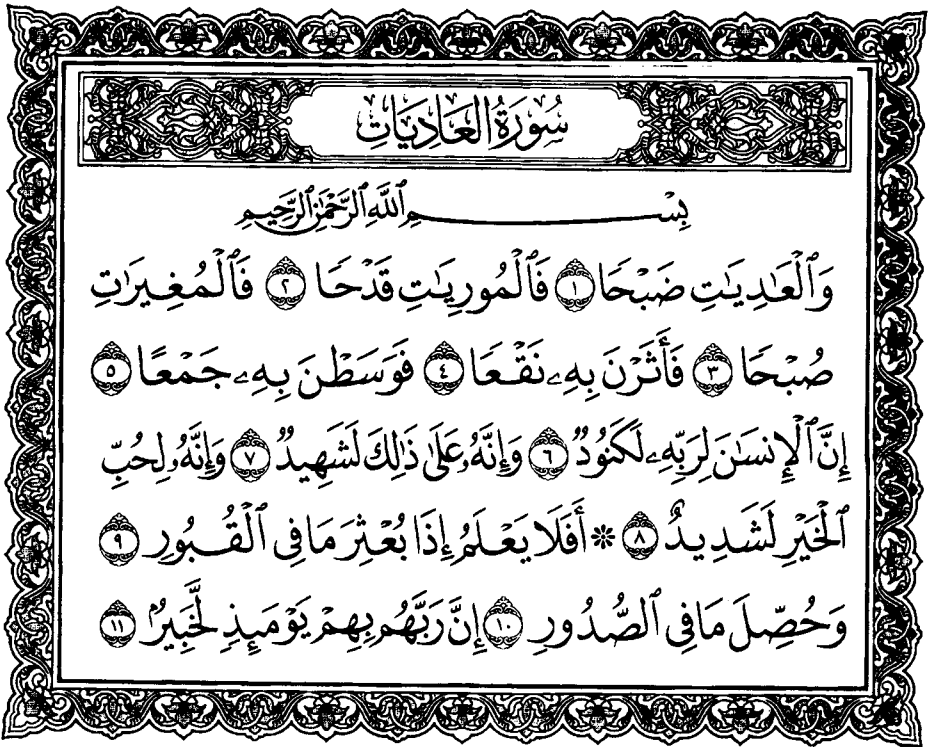 سُورَةُ العَادِيَاتِ
بِسْمِ ٱللَّهِ ٱلرَّحْمَٰنِ ٱلرَّحِيمِ
وَٱلْعَٰدِيَٰتِ ضَبْحًا ١ فَٱلْمُورِيَٰتِ قَدْحًا ٢ فَٱلْمُغِيرَٰتِ
صُبْحًا ٣ فَأَثَرْنَ بِهِۦ نَقْعًا ٤ فَوَسَطْنَ بِهِۦ جَمْعًا ٥
إِنَّ ٱلْإِنسَٰنَ لِرَبِّهِۦ لَكَنُودٌ ٦ وَإِنَّهُۥ عَلَىٰ ذَٰلِكَ لَشَهِيدٌ ٧ وَإِنَّهُۥ لِحُبِّ
ٱلْخَيْرِ لَشَدِيدٌ ٨ ۞ أَفَلَا يَعْلَمُ إِذَا بُعْثِرَ مَا فِى ٱلْقُبُورِ ٩
وَحُصِّلَ مَا فِى ٱلصُّدُورِ ١٠ إِنَّ رَبَّهُم بِهِمْ يَوْمَئِذٍ لَّخَبِيرٌۢ ١١